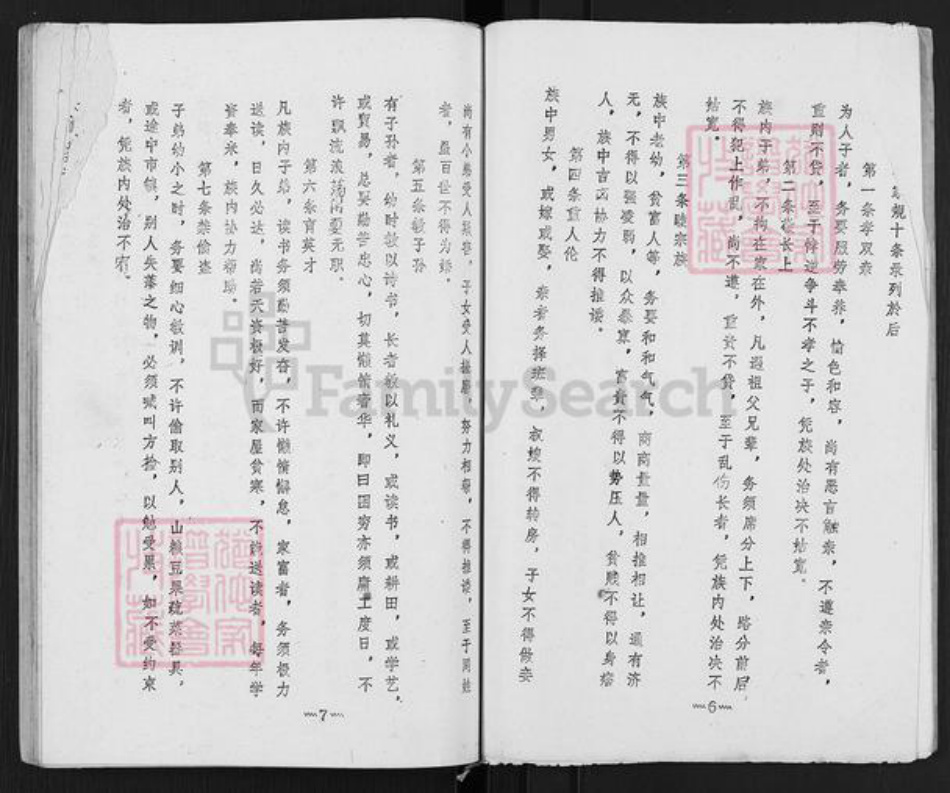 规十条录列於后
第一条孝双亲
为人子者，务要服劳奉养，愉色和容，尚有恶言触亲，不遵亲令者，
重则不贷，至于忤逆争斗不孝之子，凭族处治决不姑宽。
第二条敬长上
族内子弟，不拘在家在外，凡遇祖父兄辈，务须席分上下，路分前后，
不得犯上作乱，尚不遵，重责不贷，至于乱伤长者，凭族内处治决不
姑宽。
第三条睦宗族
族中老幼，贫富人等，务要和和气气，商商量量，相推相让，通有济
无，不得以强凌弱，以众暴寡，富贵不得以势压人，贫贱不得以身
人，族中吉凶协力不得推诿。
第四条重人伦
族中男女，或嫁或娶，亲者务择班辈，叔嫂不得转房，子女不得做妾
尚有小弟受人，子女受人，努力相，不得推诿，至于同姓
者，虽百世不得为婚。
第五条教子孙
有子孙者，幼时教以诗书，长者教以礼义，或读书，或耕田，或学艺，
或贸易，总要勤苦忠心，切莫懒惰奢华，即日困穷亦须庸工度日，不
许飘流浪荡闲耍无职。
第六条育英才
凡族内子弟，读书务须勤苦发奋，不许懒惰懈怠，家富者，务须极力
送读，日久必达，尚若天资极好，而家屋贫寒，不能送读者，每年学
资奉米，族内协力帮助。
第七条禁偷盗
子弟幼小之时，务要细心教训，不许偷取别人，山粮豆果疏菜器具，
或途中市镇，别人失落之物，必须喊叫方捡，以免受累，如不受约束
者，凭族内处治不宥。
6
7
FamilySearch